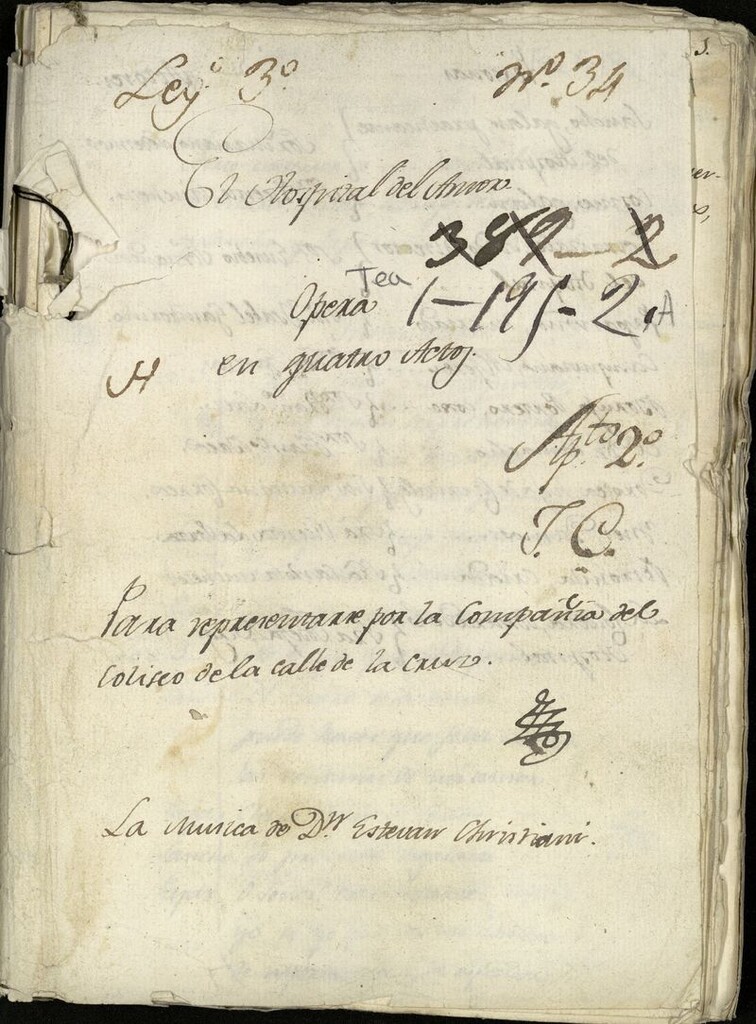 Leg.º 3.º Nº. 34
El Hospital del Amor.
389-2
Tea
Opera 1-195-2, A
en quatro Actos.
H
Ap.to 2.º
T. C.
Para representarse por la Compañía del
Coliseo de la calle de la Cruz.
La Musica de D.n Estevan Christiani.
3.
er-